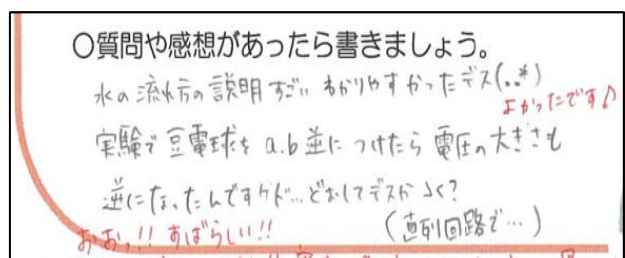 〇質問や感想があったら書きましょう。
水の流れ方の説明すごいわかりやすかったデス(..*)
よかったです♪
実験で豆電球をa.b逆につけたら電圧の大きさも
逆になったんですケド…どおしてデスか
(直列回路で…)
おおっ!!すばらしい!!